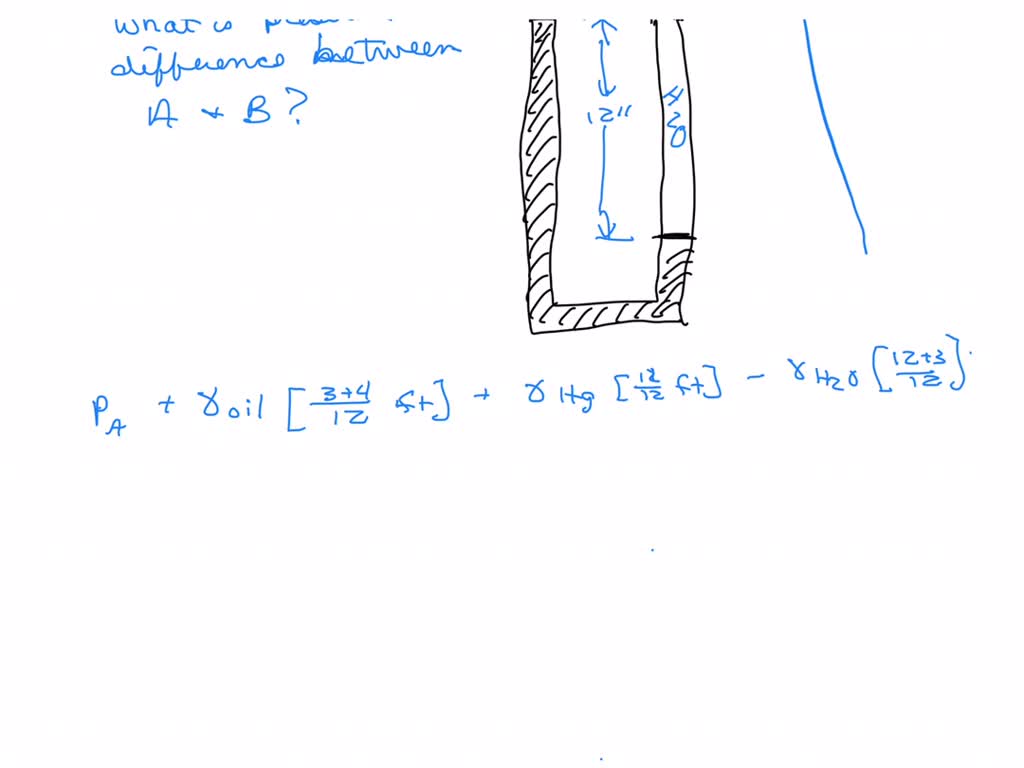 what is
difference between
A + B ?
12"
H2O
P_A + γ_oil [3+4/12 ft] + γ_Hg [12/12 ft] - γ_H2O [12+3/12]